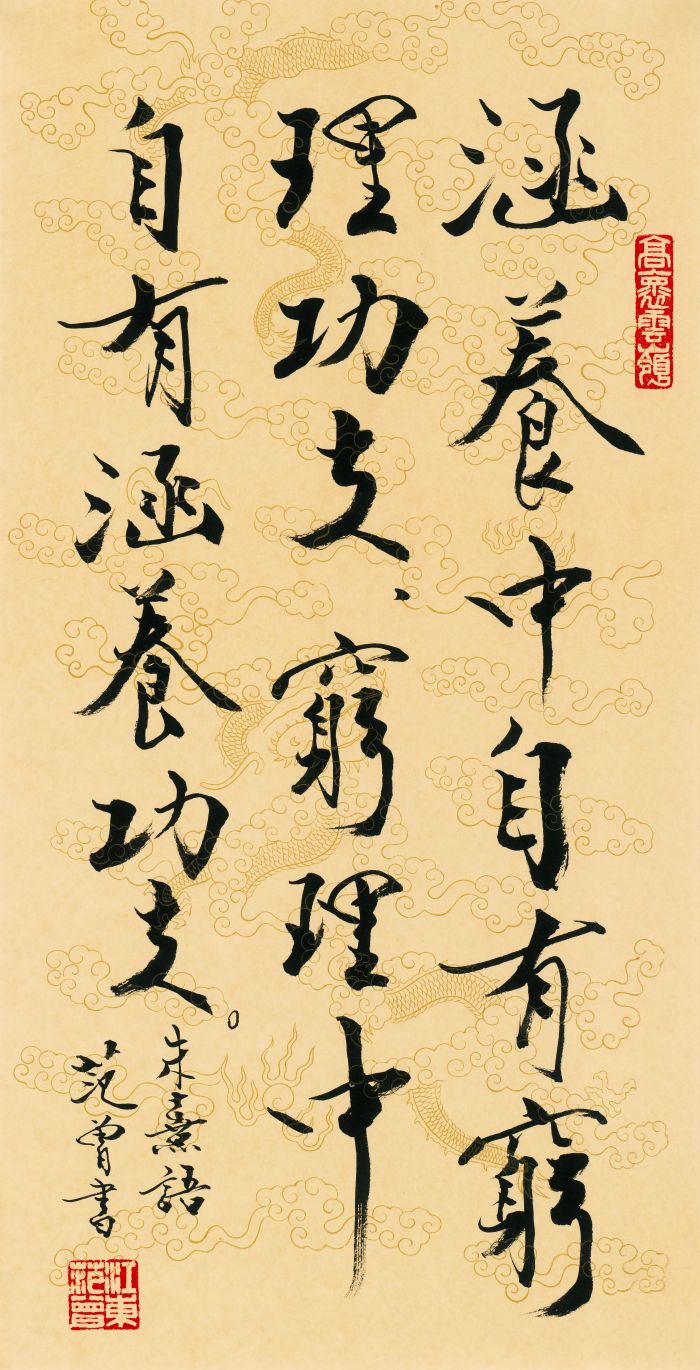 涵養中自有窮
理功夫、窮理中
自有涵養功夫。
朱熹語
范曾書
江東范曾